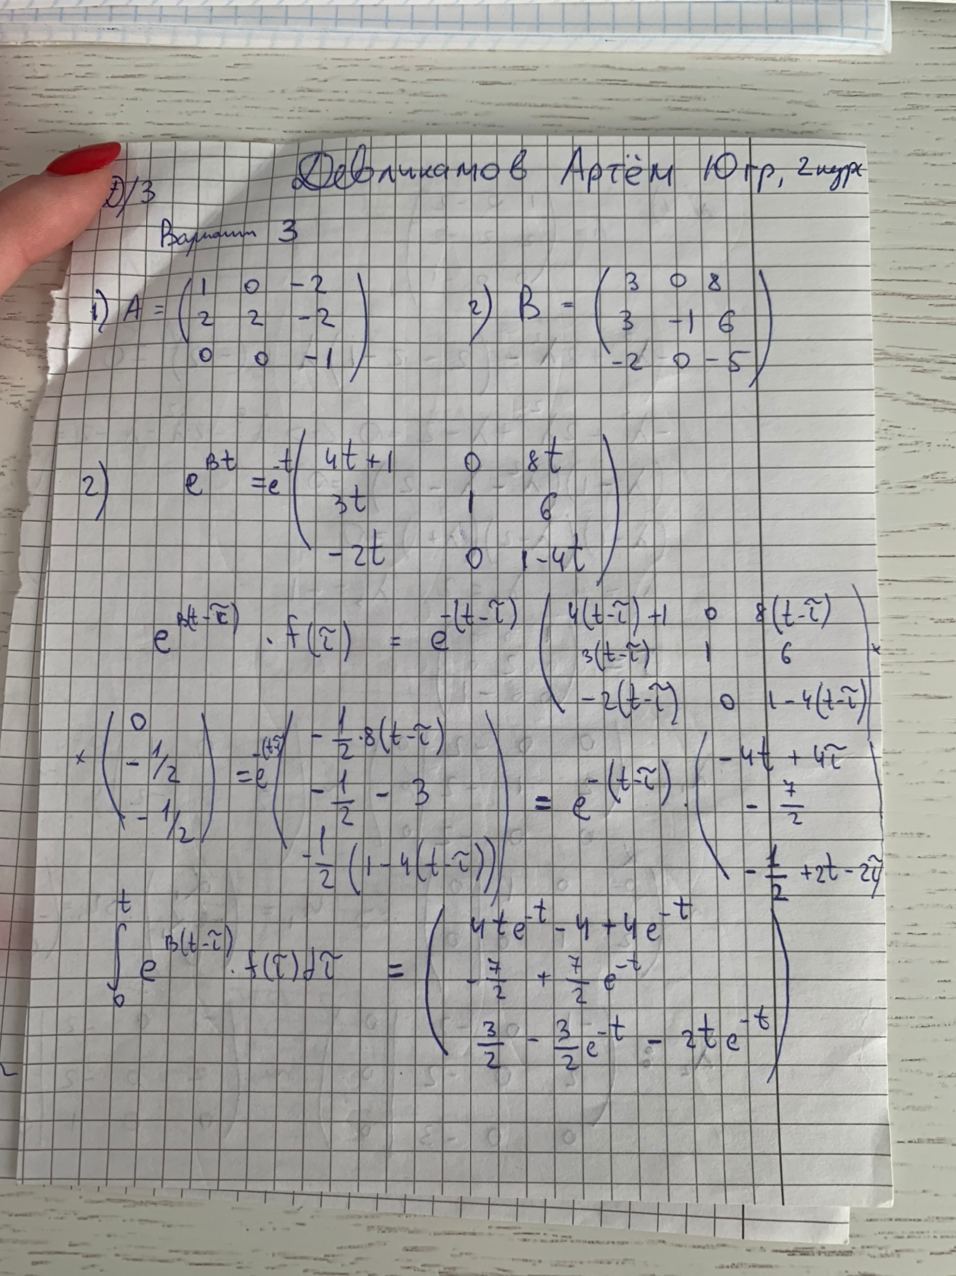 Девликамов Артём Югр, 2 курс
Д/З
Вариант 3
1) A = (1 0 -2
2 2 -2
0 0 -1)
2) B = (3 0 8
3 -1 6
-2 0 -5)
2) e^{Bt} = e^{-t} (4t+1 0 8t
3t 1 6
-2t 0 1-4t)
e^{B(t-τ)} · f(τ) = e^{-(t-τ)} (4(t-τ)+1 0 8(t-τ)
3(t-τ) 1 6
-2(t-τ) 0 1-4(t-τ)) ×
× (0
-1/2
-1/2) = e^{-(t-τ)} (-1/2·8(t-τ)
-1/2 - 3
-1/2(1-4(t-τ))) = e^{-(t-τ)} · (-4t + 4τ
-7/2
-1/2 + 2t - 2τ)
∫_0^t e^{B(t-τ)} · f(τ)dτ = (4te^{-t} - 4 + 4e^{-t}
-7/2 + 7/2 e^{-t}
3/2 - 3/2 e^{-t} - 2te^{-t})